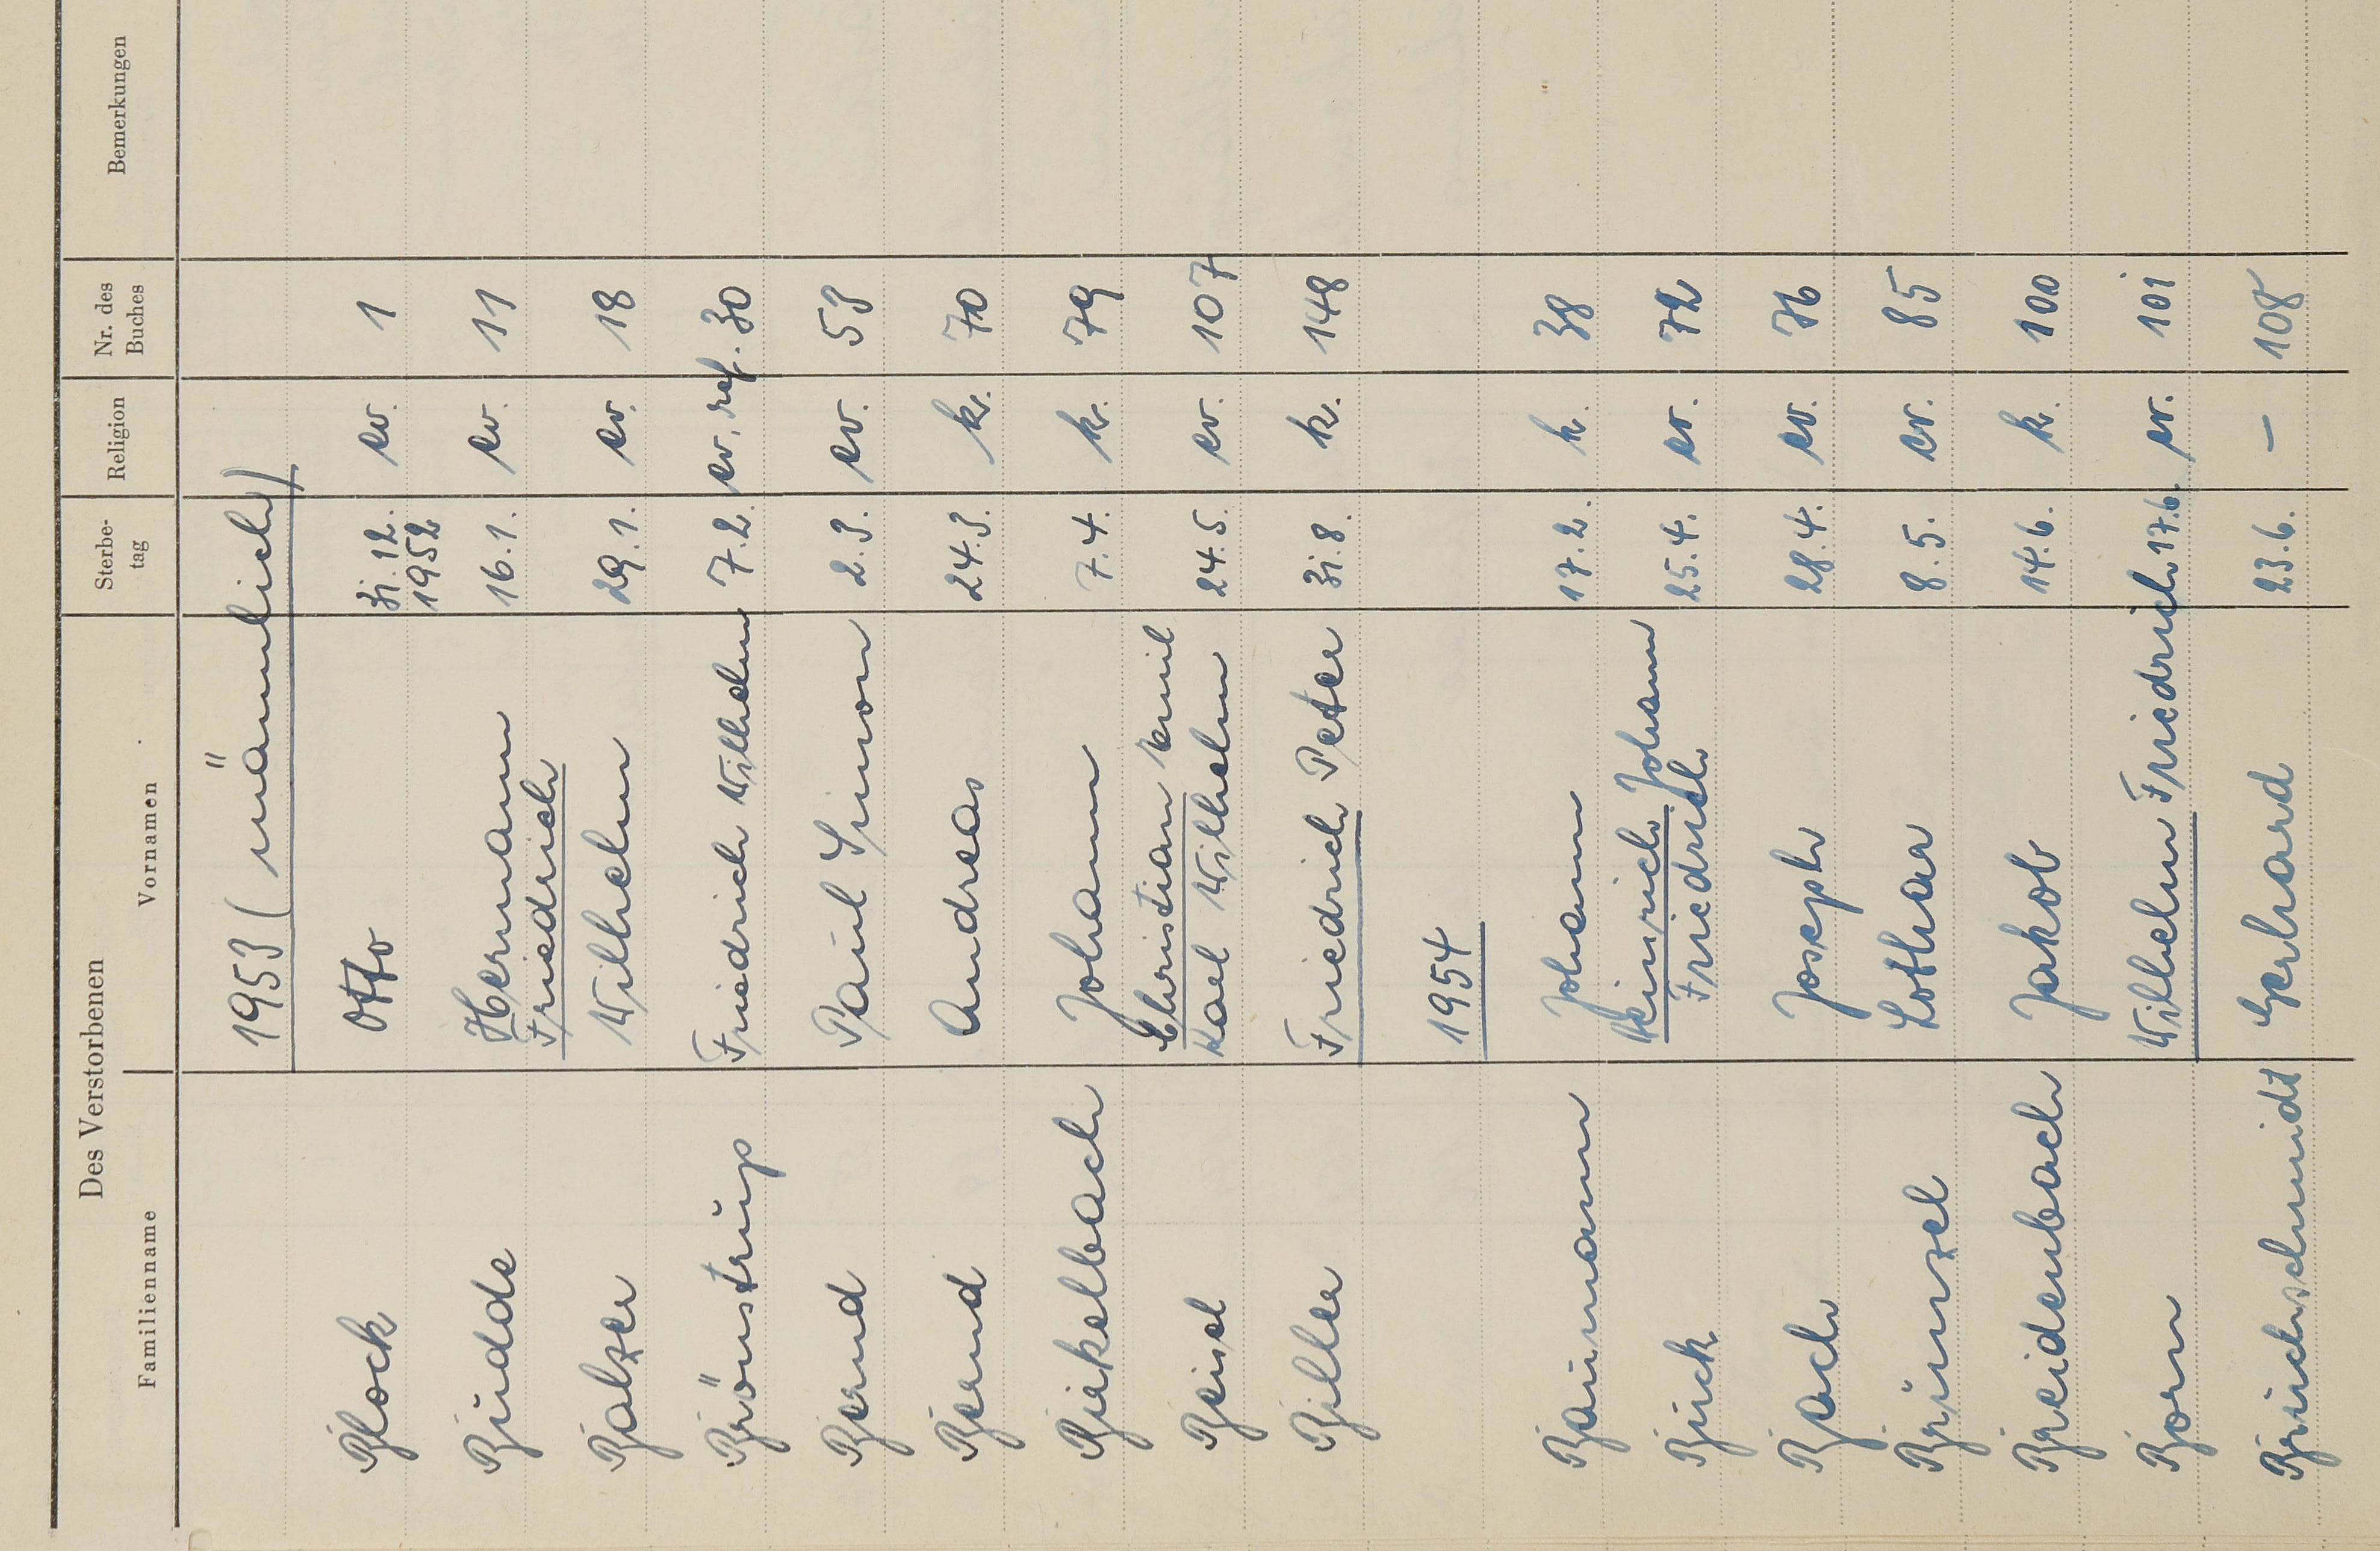 Des Verstorbenen
Familienname Vornamen Sterbe-tag Religion Nr. des Buches Bemerkungen
1953 (männlich)
Block Otto 31.12.1952 ev. 1
Budde Hermann Friedrich 16.1. ev. 11
Balzer Wilhelm 29.1. ev. 18
Brönstrup Friedrich Wilhelm 7.2. ev. ref. 30
Bernd Paul Simon 2.3. ev. 53
Bernd Andreas 24.3. k. 70
Birkelbach Johann 7.4. k. 79
Beisel Christian Emil Karl Wilhelm 24.5. ev. 107
Biller Friedrich Peter 31.8. k. 148
1954
Baumann Johann 17.2. k. 38
Buck Heinrich Johann Friedrich 25.4. ev. 72
Bach Joseph 28.4. ev. 76
Brünzel Lothar 8.5. ev. 85
Breidenbach Jakob 14.6. k. 100
Born Wilhelm Friedrich 17.6. ev. 101
Bruchschmidt Gerhard 23.6. – 108